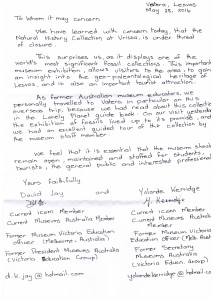 Vatera, Lesvos
May 28, 2016
To Whom it may concern,
We have learned with concern today that the
Natural History Collection at Vrisa, is under threat
of closure.
This surprises us, as it displays one of the
world's most significant fossil collections. This important
museum exhibition, allows visitors to the area, to gain
an insight into the geo-palaeontological heritage of
Lesvos, and is also an important tourist attraction.
As former Australian museum educators, we
personally travelled to Vatera in particular on this
overseas trip, because we had read about this collection
in the Lonely Planet guide book. On our visit yesterday
the exhibition of fossils lived up to its promise, and
we had an excellent guided tour of the collection by
the museum staff member.
We feel that it is essential that the museum should
remain open, maintained and staffed for students,
tourists, the general public and interested professionals
Yours Faithfully
David Jay and Yolande Kerridge
Y. Kerridge
Current Icom Member
Current Museums Australia Member
Current Icom Member
Current Museums Australia
Member
Former Museum Victoria Education
Officer (Melbourne Australia)
Former Museum Victoria
Education Officer (Melb. Aust)
Former President Museums Australia
(Victoria Education Group)
Former Secretary
Museums Australia
(Victoria Educn. Group)
d.k.jay@hotmail.com
yolandekerridge@hotmail.co